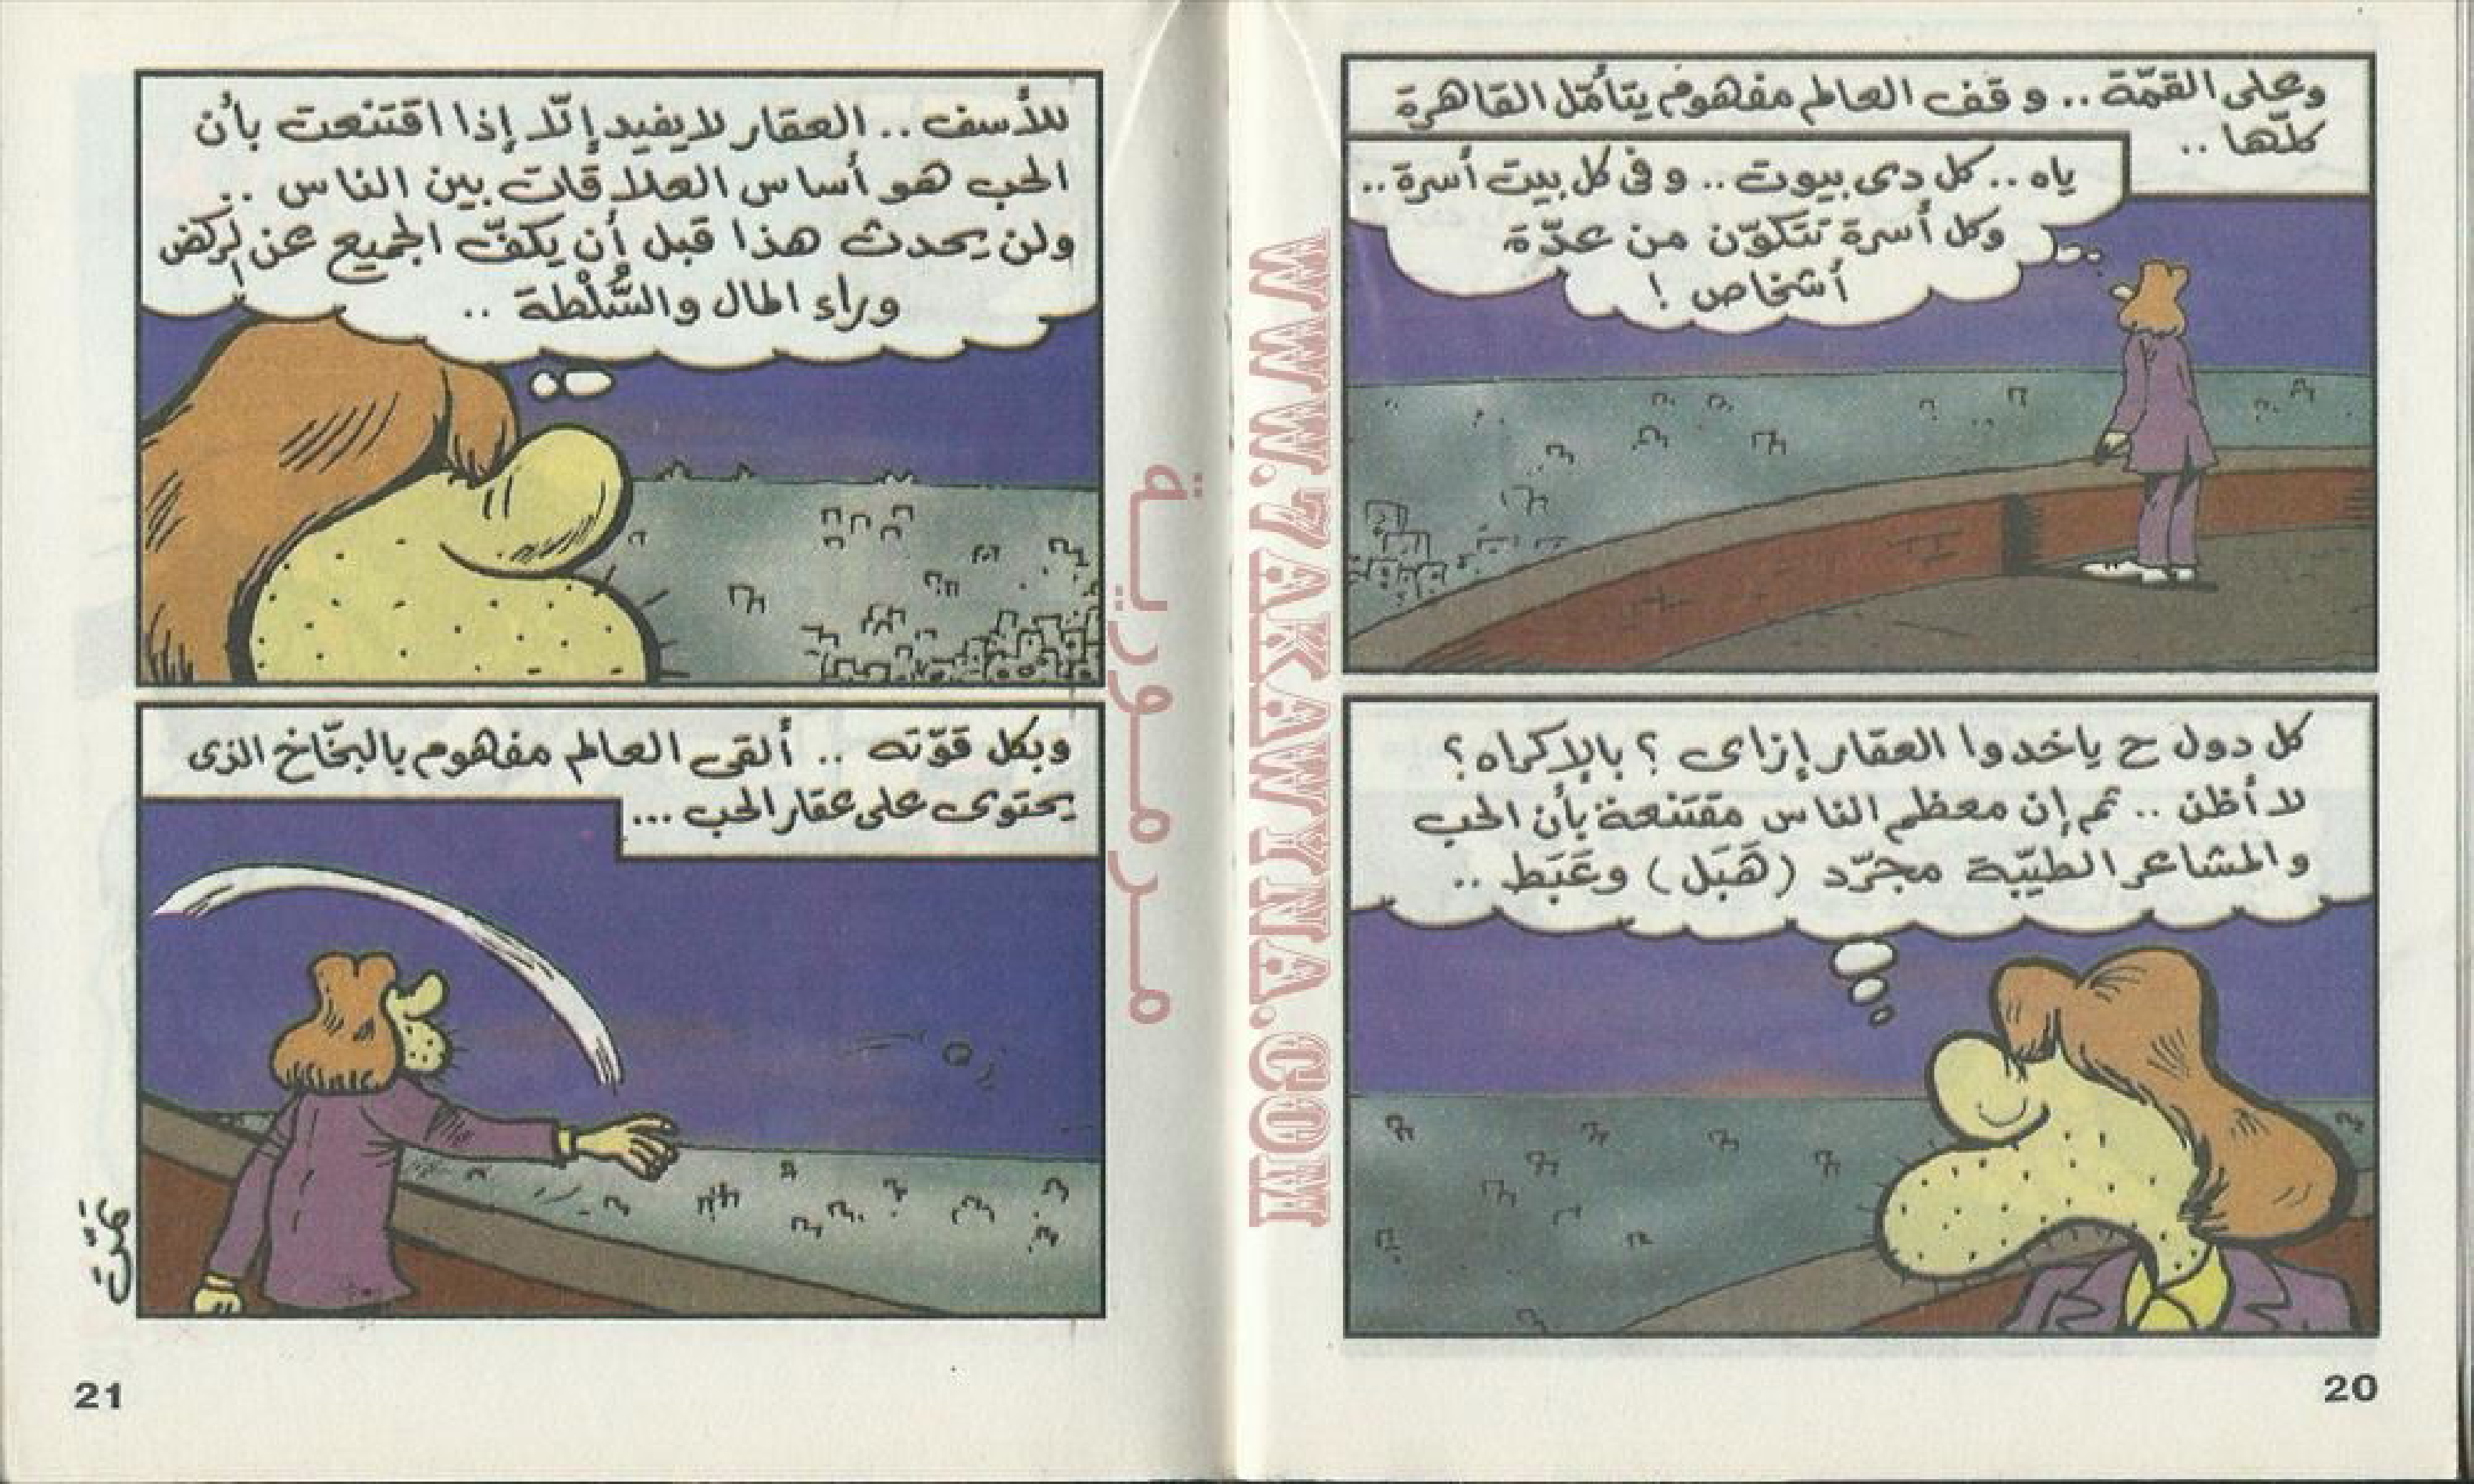 وعلى القمّة .. وقف العالم مفهوم يتأمّل القاهرة
كلّها ..
ياه .. كل دى بيوت .. وفى كل بيت أسرة ..
وكل أسرة تتكوّن من عدّة
أشخاص !
كل دول ح ياخدوا العقار إزاى ؟ بالإكراه ؟
لا أظن .. ثم إن معظم الناس مقتنعة بأن الحب
والمشاعر الطيّبة مجرّد (هَبَل) وعَبَط ..
20
للأسف .. العقار لا يفيد إلّا إذا اقتنعت بأن
الحب هو أساس العلاقات بين الناس ..
ولن يحدث هذا قبل أن يكفّ الجميع عن الركض
وراء المال والسُّلْطة ..
وبكل قوّته .. ألقى العالم مفهوم بالبخّاخ الذى
يحتوى على عقار الحب ...
21
WWW.7AKAWYINA.COM
مرمورية